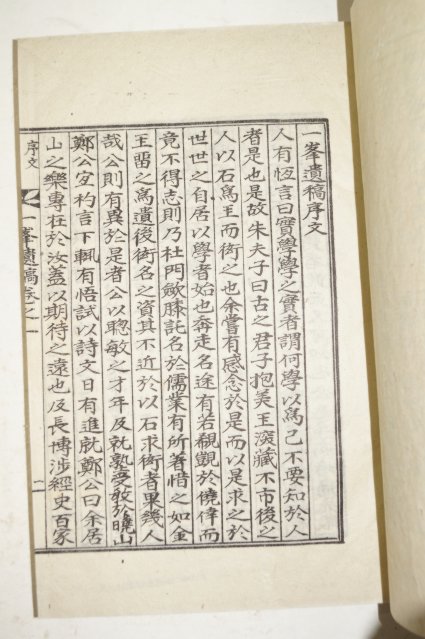 一峯遺稿序文
人有恒言曰實學學之實者謂何學以爲己不要知於人
者是也是故朱夫子曰古之君子抱美玉深藏不市後之
人以石爲玉而衒之也余嘗有感念於是而以是求之於
世世之自居以學者始也奔走名途有若覬覦於僥倖而
竟不得志則乃杜門斂膝託名於儒業有所著惜之如金
玉留之爲遺後衒名之資其不近於以石求衒者果幾人
哉公則有異於是者公以聰敏之才年及就塾受敎於曉山
鄭公宜杓言下輒有悟試以詩文日有進就鄭公曰余居
山之樂專在於汝盖以期待之遠也及長博涉經史百家
序文
一峯遺稿序之一
二